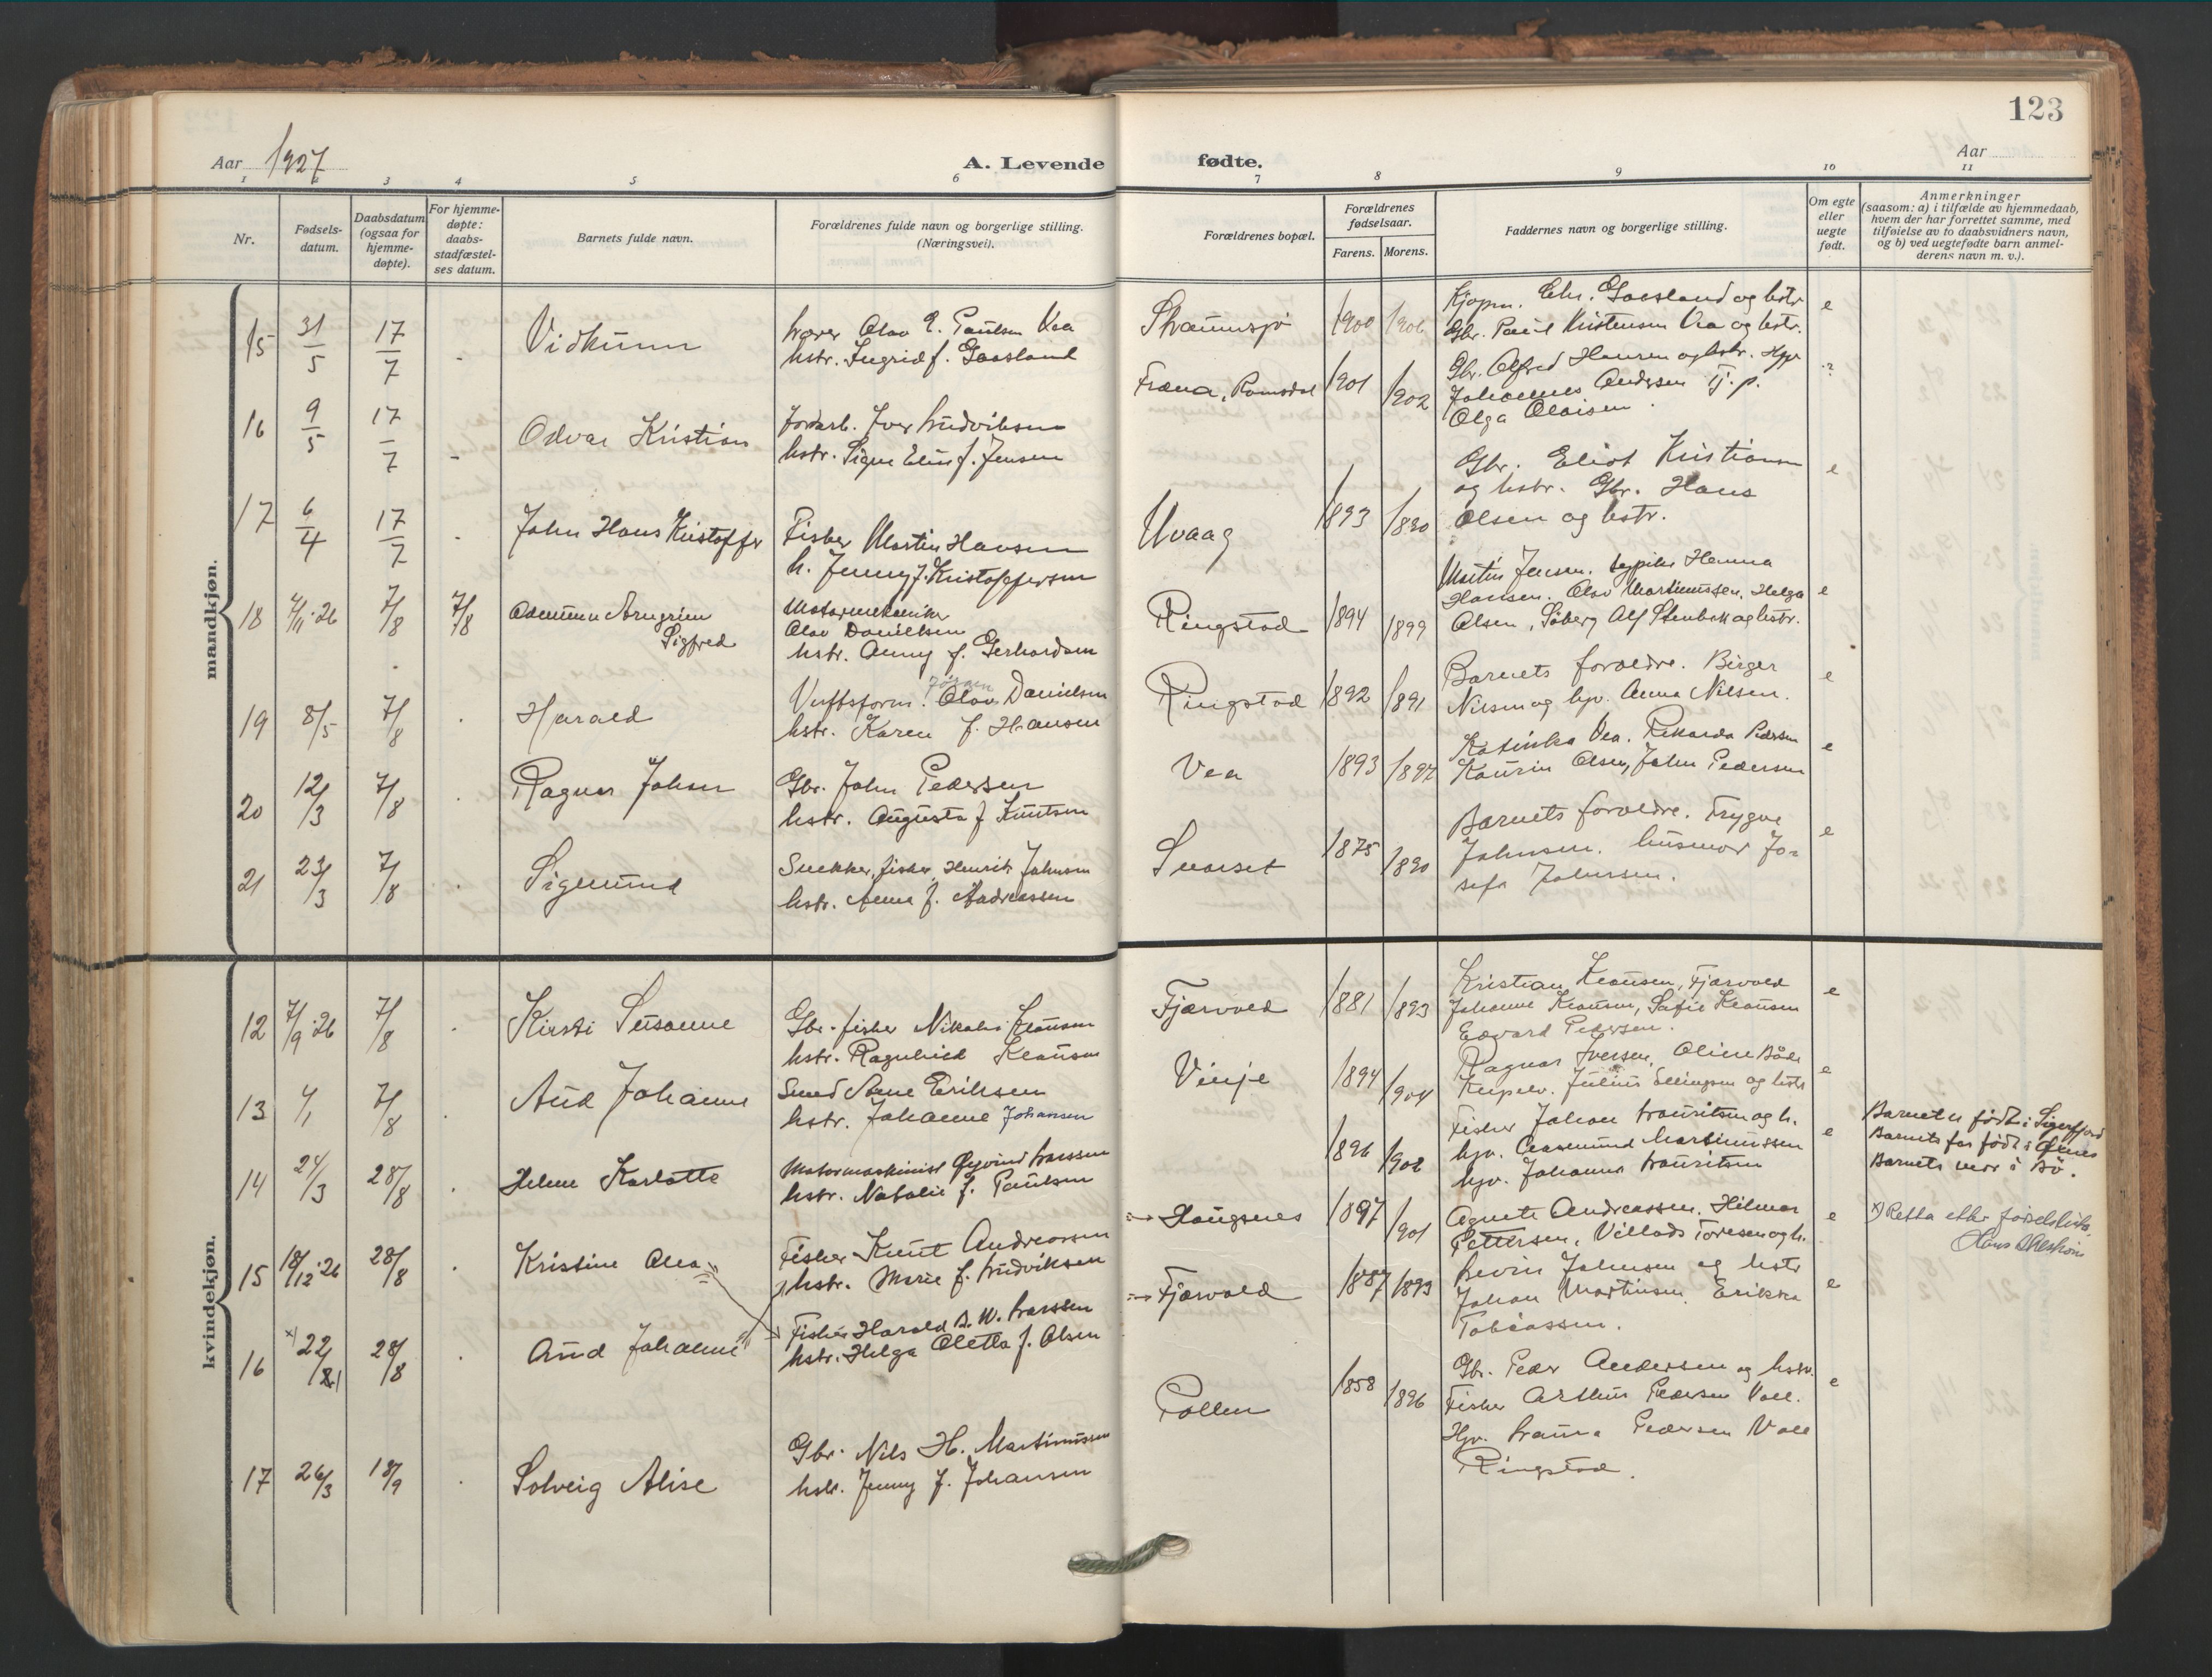 123
Aar 1927
A. Levende fødte.
Aar
1 2 3 4 5 6 7 8 9 10 11
Nr.
Fødsels-
datum.
Daabsdatum
(ogsaa for
hjemme-
døpte).
For hjemme-
døpte:
daabs-
stadfæstel-
ses datum.
Barnets fulde navn.
Forældrenes fulde navn og borgerlige stilling.
(Næringsvei).
Forældrenes bopæl.
Forældrenes
fødselsaar.
Farens. Morens.
Faddernes navn og borgerlige stilling.
Om egte
eller
uegte
født.
Anmerkninger
(saasom: a) i tilfælde av hjemmedaab,
hvem der har forrettet samme, med
tilføielse av to daabsvidners navn,
og b) ved uegtefødte barn anmel-
derens navn m. v.).
mandkjøn.
15 31/5 17/7 - Vidkunn
Lærer Olav E. Paulsen Vea
hstr. Ingrid f. Gaasland
1900 1906
Kjøpm. Chr. Gaasland og hstr
Gbr. Paul Kristensen Vea og hstr.
e
16 9/5 17/7 - Odvar Kristian
Jordarb. Iver Ludviksen
hstr. Signe Elin f. Jensen
Fræna, Romsdal 1901 1902
Gbr. Alfred Hansen og hstr.
Johannes Andersen Tj. p.
Olga Olaisen.
17 6/4 17/7 - John Hans Kristoffer
Fisker Martin Hansen
h. Jenny f. Kristoffersen
Uvaag 1893 1890
Gbr. Eliot Kristiansen
og hstr. Gbr. Hans
Olsen og hstr.
e
18 7/11 26 7/8 7/8 Odmunn Arngrim
Sigfred
Motormekaniker
Olav Danielsen
hstr. Anny f. Gerhardsen
Ringstad 1894 1899
Martin Jensen. Hanna
Hansen. Olav Martinussen. Helga
Olsen, Søberg Alf Stenbak og hstr.
e
19 8/5 7/8 . Harald
Jørgen
Verftsform. Olav Danielsen
hstr. Karen f. Hansen
Ringstad 1892 1891
Barnets foreldre. Birger
Nilsen og hjv. Anna Nilsen.
e
20 12/3 7/8 . Ragnar Johan
Gbr. John Pedersen
hstr. Augusta f Knutsen
Vea 1893 1897
Katinka Vea. Rikarda Pedersen
Kaurin Olsen, John Pedersen
e
21 23/3 7/8 . Sigmund
Snekker, fisker, Henrik Johnsen
hstr. Anna f. Andreassen
Svarset 1875 1890
Barnets foreldre. Trygve
Johnsen. husmor Jo-
sefa Johnsen.
e
kvindekjøn.
12 7/9 26 7/8 . Kirsti Susanne
Gbr. fisker Nikolai Klausen
hstr. Ragnhild Klausen
Fjærvoll 1881 1893
Kristian Klausen, Fjærvold
Johanne Klausen, Sofie Klausen
Edvard Pedersen.
e
13 4/1 7/8 . Aud Johanne
Smed Arne Eriksen
hstr. Johanne Johansen
Vinje 1894 1904
Ragnar Iversen, Oline
Julius Ellingsen og hstr
e
14 24/3 28/8 . Helene Karlotte
Motormaskinist Øyvind Larssen
hstr. Natalie f. Paulsen
1896 1902
Fisker Johan Lauritsen og h.
hjv. Aasemund Martinussen
hjv. Johanna Lauritsen
e
Barnet er født i Sigerfjord
Barnets far født i Øknes
Barnets mor i Bø.
15 18/12 26 28/8 . Kristine Alea
Fisker Knut Andreassen
hstr. Marie f. Ludviksen
Haugsnes 1897 1901
Agnete Andreassen. Hilmar
Pettersen, Villads Toresen og h.
e
x) Retta etter fødselslista.
16 x) 22/1 28/8 . Aud Johanne
Fisker Harald A. W. Larssen
hstr. Helga Oletta f. Olsen
Fjærvold 1887 1893
Levin Johnsen og hstr
Johan Martinsen. Erikka
Tobiassen.
e
17 26/3 18/9 . Solveig Alise
Gbr. Nils H. Martinussen
hstr. Jenny f. Johansen
Pollen 1858 1896
Gbr. Peder Andersen og hstr.
Fisker Arthur Pedersen Voll.
Hjv. Laura Pedersen Voll
Ringstad.
e